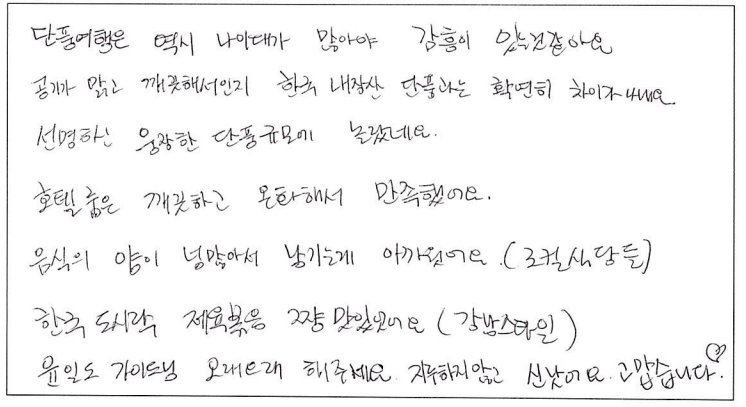 단풍여행은 역시 나이대가 많아야 감흥이 있는것같아요
공기가 맑고 깨끗해서인지 한국 내장산 단풍과는 확연히 차이가 나네요.
선명하신 웅장한 단풍규모에 놀랐네요.
호텔 룸은 깨끗하고 온화해서 만족했어요.
음식의 양이 넘많아서 남기는게 아까웠어요.(로컬식당들)
한국 도시락 제육볶음 그쟝 맛있었어요 (강남스타일)
윤일도 가이드님 오래오래 해주세요. 지루하지않고 신났어요. 고맙습니다.